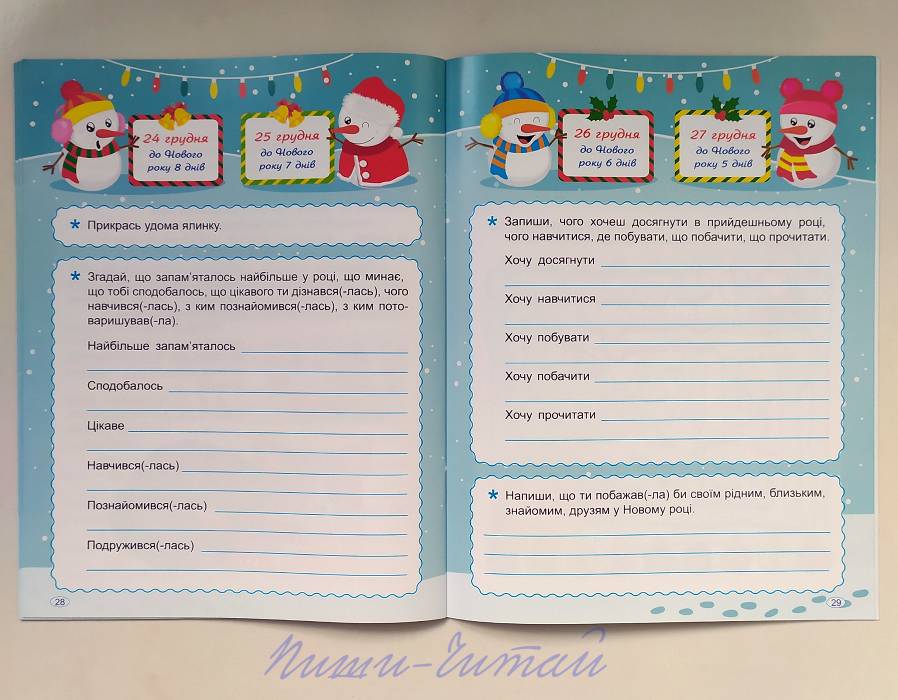 24 грудня
до Нового
року 8 днів
25 грудня
до Нового
року 7 днів
* Прикрась удома ялинку.
* Згадай, що запам'яталось найбільше у році, що минає,
що тобі сподобалось, що цікавого ти дізнався(-лась), чого
навчився(-лась), з ким познайомився(-лась), з ким пото-
варишував(-ла).
Найбільше запам'яталось
Сподобалось
Цікаве
Навчився(-лась)
Познайомився(-лась)
Подружився(-лась)
28
26 грудня
до Нового
року 6 днів
27 грудня
до Нового
року 5 днів
* Запиши, чого хочеш досягнути в прийдешньому році,
чого навчитися, де побувати, що побачити, що прочитати.
Хочу досягнути
Хочу навчитися
Хочу побувати
Хочу побачити
Хочу прочитати
* Напиши, що ти побажав(-ла) би своїм рідним, близьким,
знайомим, друзям у Новому році.
29
Пиши-Читай